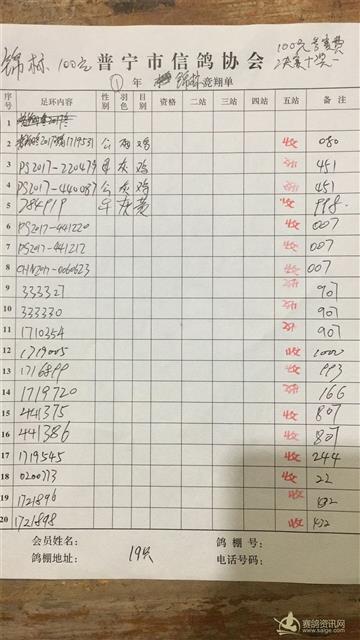 锦林 100元 普宁市信鸽协会 100元
决赛十奖一
① 年 锦林 竞翔单
序号 足环内容 性别 羽色 眼色 资格 二站 三站 四站 五站 备注
1
2 2017 1719531 公 鸡 080
3 PS2017-220479 灰 鸡 451
4 PS2017-440087 公 灰 鸡 451
5 284919 灰 黄 998
6 PS2017-441220 007
7 PS2017-441212 007
8 CHN2017-0060623 007
9 333327 907
10 333330 907
11 1710354 907
12 1719005 1000
13 1716899 993
14 1719720 166
15 441375 807
16 441386 807
17 1719545 244
18 0200773 22
19 1721896 132
20 1721898 132
会员姓名: 鸽棚号:
鸽棚地址: 19只 电话号码:
赛鸽资讯网
www.saige.com